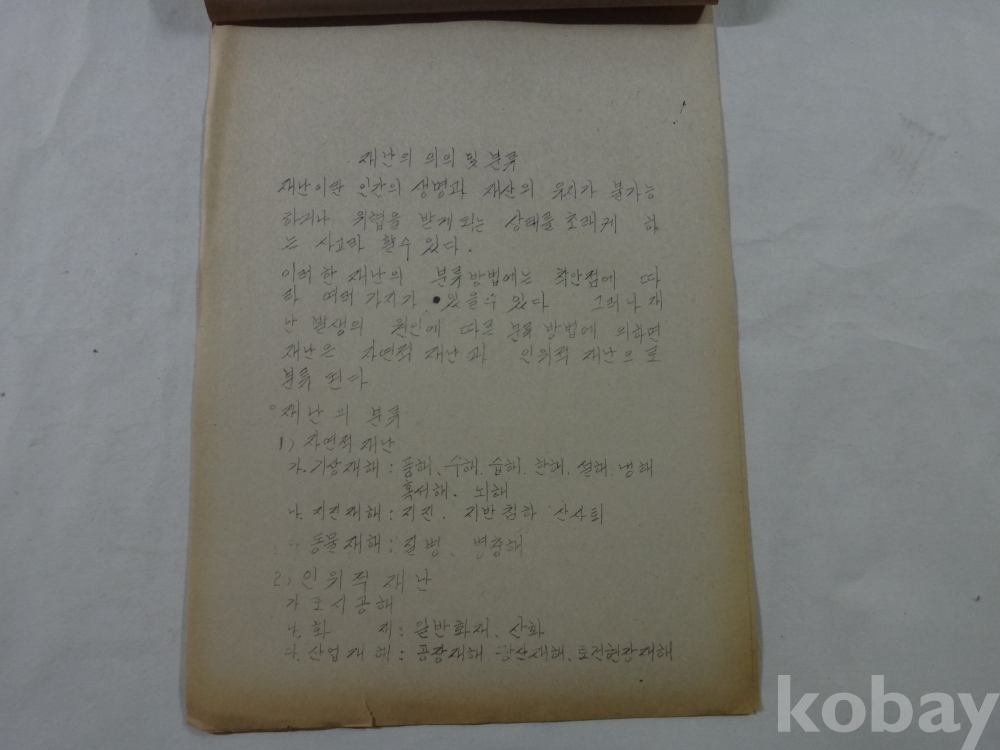 재난의 의의 및 분류
재난이란 인간의 생명과 재산의 유지가 불가능
하거나 위협을 받게 되는 상태를 초래케 하
는 사고라 할수 있다.
이러한 재난의 분류방법에는 착안점에 따
라 여러 가지가 있을수 있다 그러나 재
난 발생의 원인에 따른 분류 방법에 의하면
재난은 자연적 재난과 인위적 재난으로
분류 된다
○재난의 분류
1) 자연적 재난
가. 기상재해 : 풍해, 수해. 습해. 한해. 설해. 냉해
혹서해. 뇌해
나. 지진재해 : 지진. 지반침하 산사태
동물재해 : 질병, 병충해
2) 인위적 재난
가 도시공해
나. 화 재 : 일반화재. 산화
다. 산업재해 : 공장재해 광산재해. 토건현장재해
kobay